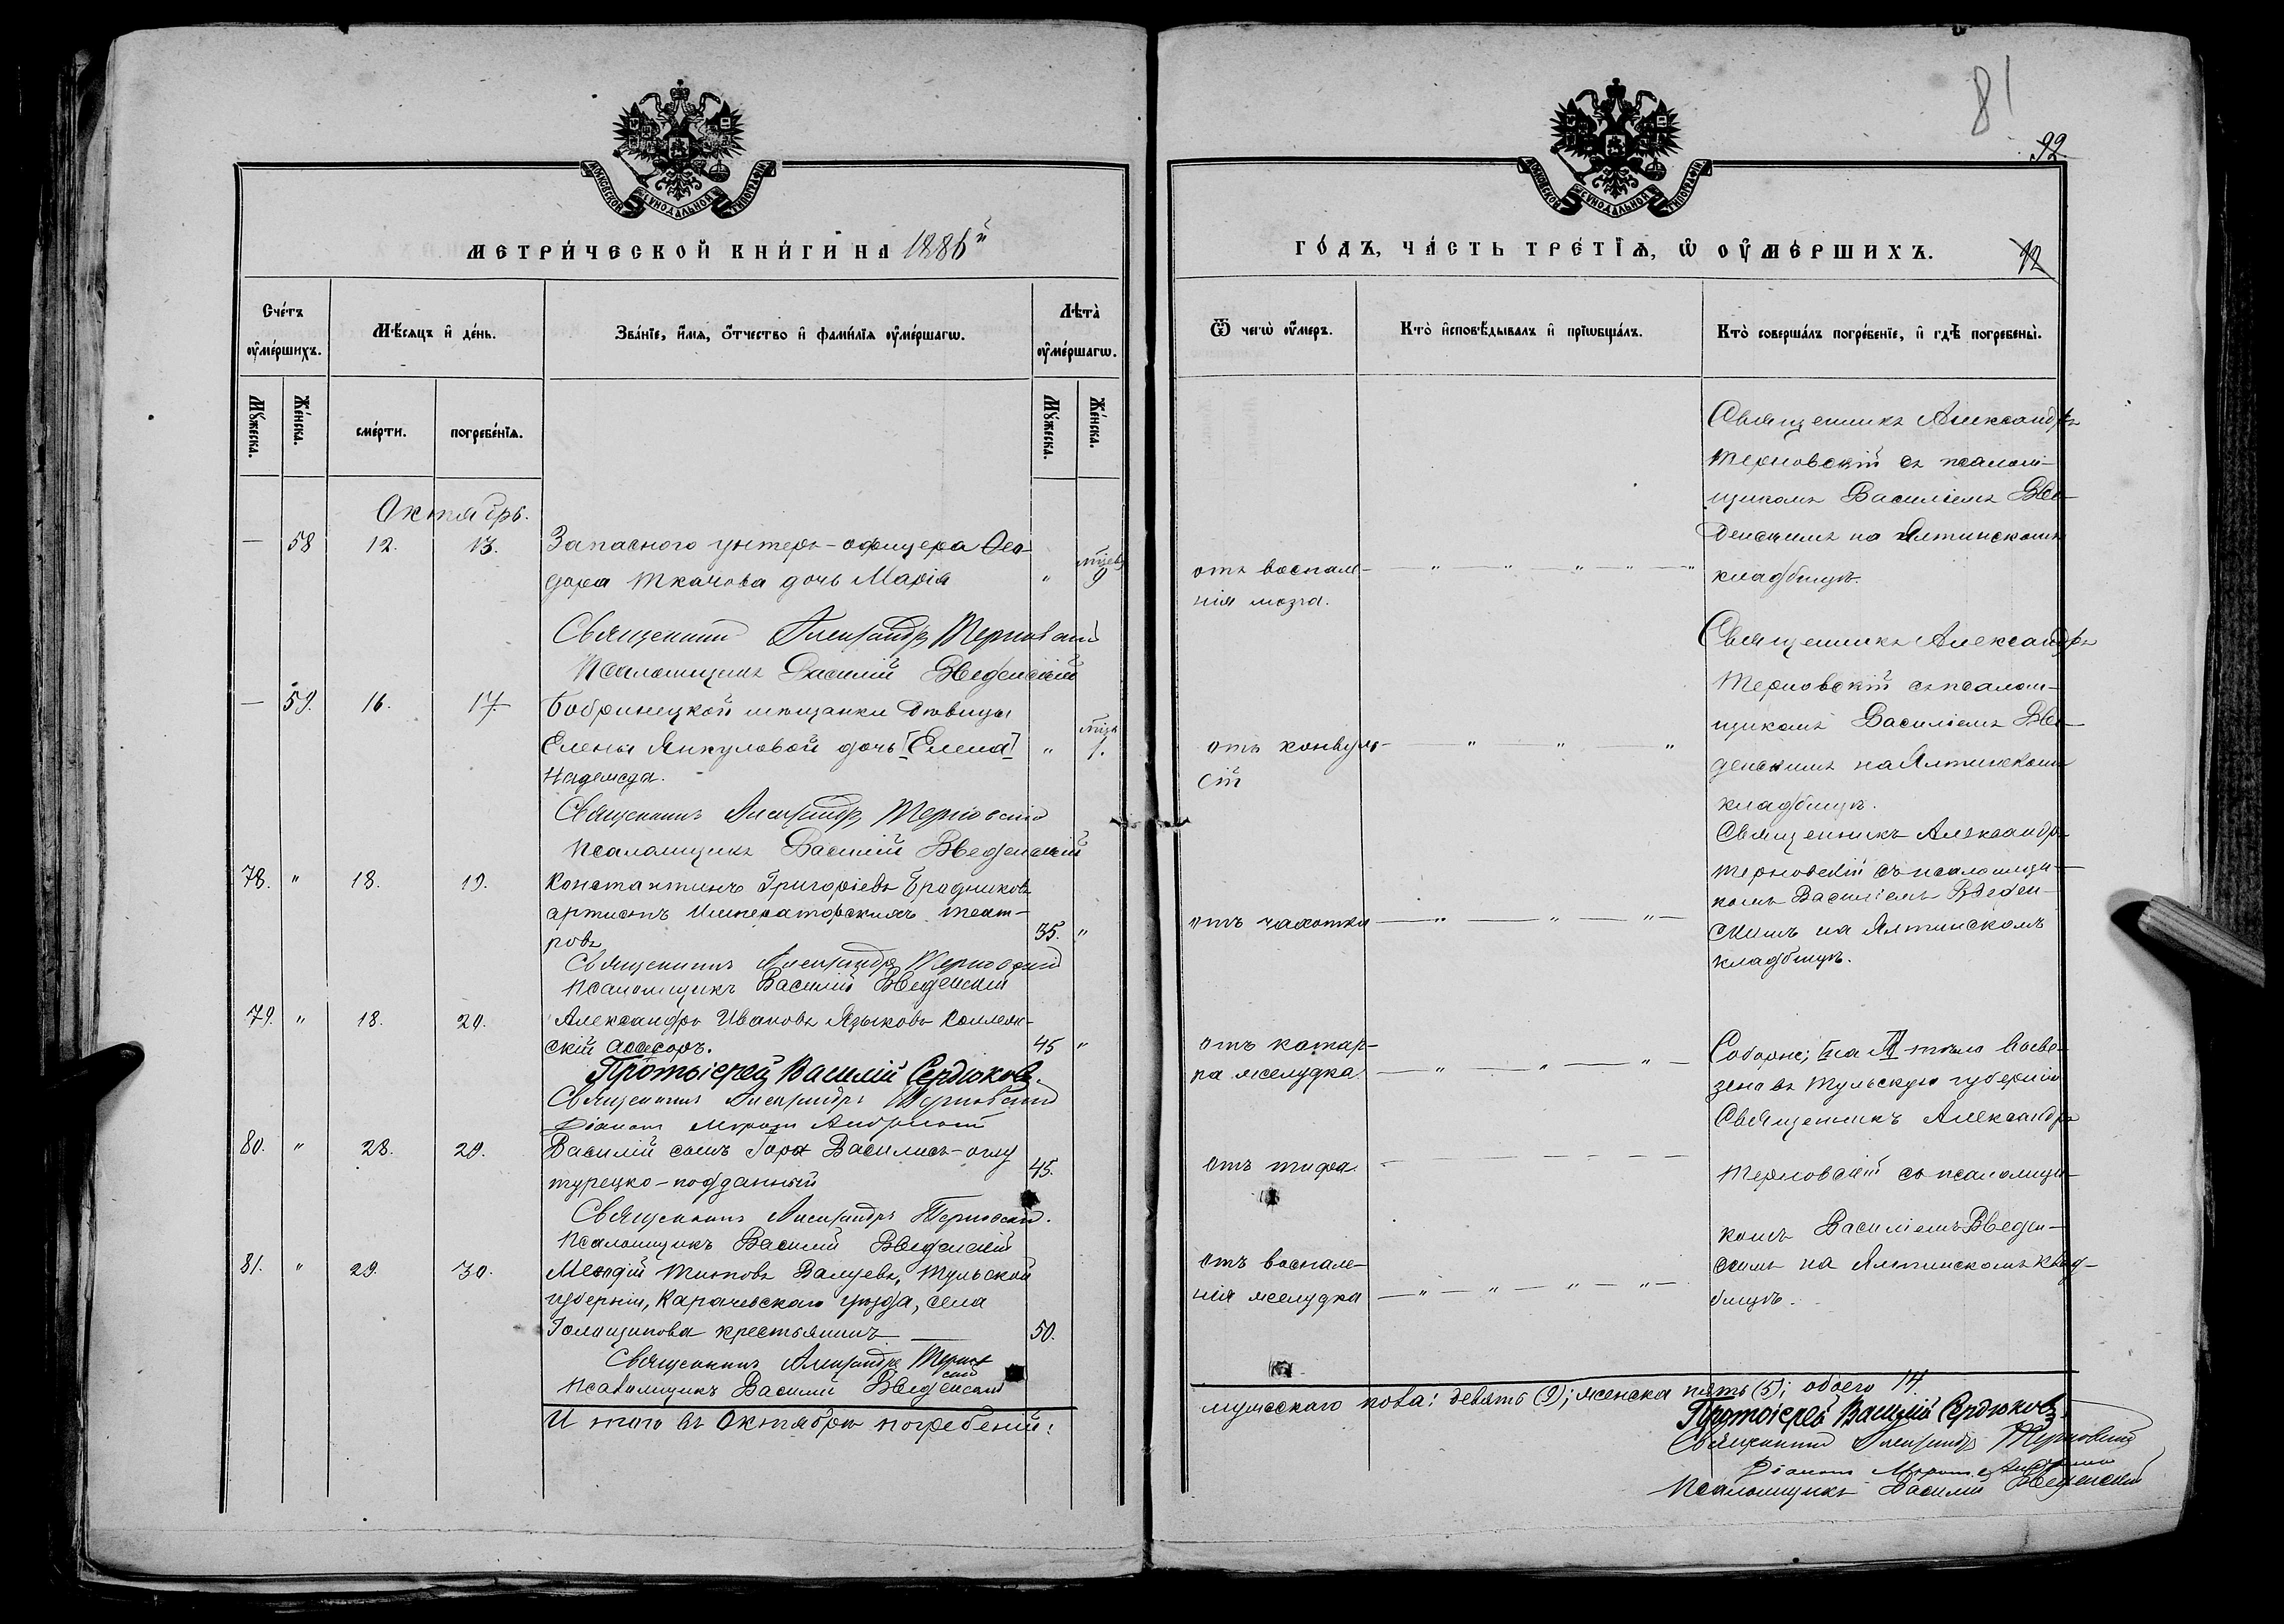 81
92
МОСКОВСКОЙ СѴНОДАЛЬНОЙ ТИПОГРАФІИ
МОСКОВСКОЙ СѴНОДАЛЬНОЙ ТИПОГРАФІИ
МЕТРИ́ЧЕСКОЙ КНИ́ГИ НА 1886й
ГО́ДЪ, ЧА́СТЬ ТРЕ́ТЇѦ, Ѡ҆ ОУ҆МЕ́РШИХЪ.
12
Сче́тъ оу҆ме́ршихъ.
Мѣ́сяцъ и҆ де́нь.
Зва́нїе, и҆́мѧ, ѻ҆́тчество и҆ фамн́лїѧ оу҆ме́ршагѡ.
Лѣ́та̀ оу҆ме́ршагѡ.
Ѿ чегѡ̀ оу҆́меръ.
Кто̀ и҆сповѣ́дывалъ и҆ прїѡбща́лъ.
Кто̀ соверша́лъ погребе́нїе, и҆ гдѣ̀ погребены̀.
Мꙋ́жеска.
Же́нска.
сме́рти.
погребе́нїѧ.
Мꙋ́жеска.
Же́нска.
Октябрь.
— 58 12. 13. Запаснаго унтеръ-офицера Ѳео-
дора Ткачова дочь Марія " мѣсяц. 9
отъ воспале-
нія мозга.
Священникъ Александръ
Терновскій съ псалом-
щикомъ Василіемъ Вве-
денскимъ на Ялтинскомъ
кладбищѣ.
Священникъ Александръ Терновскій
Псаломщикъ Василій Введенскій
— 59. 16. 17. Бобринецкой мѣщанки дѣвицы
Елены Янкуловой дочь [Елена] " мѣсц. 1.
Надежда.
отъ конвуль-
сій
Священникъ Александръ
Терновскій съ псалом-
щикомъ Василіемъ Вве-
денскимъ на Ялтинскомъ
кладбищѣ.
Священникъ Александръ Терновскій
Псаломщикъ Василій Введенскій
78. " 18. 19. Константинъ Григоріевъ Бродниковъ
артистъ Императорскихъ теат-
ровъ 35. "
отъ чахотки
Священникъ Александръ
Терновскій съ псаломщи-
комъ Василіемъ Введен-
скимъ на Ялтинскомъ
кладбищѣ.
Священникъ Александръ Терновскій
Псаломщикъ Василій Введенскій
79. " 18. 20. Александръ Ивановъ Языковъ Коллеж-
скій Асесоръ. 45 "
отъ катар-
ра желудка
Соборне; тѣло
въ Тульскую губернію
Протоіерей Василій Сердюковъ.
Священникъ Александръ Терновскій
Діаконъ
80. " 28. 29. Василій сынъ Василисъ-оглу
турецко-подданный 45.
отъ тифа
Священникъ Александръ
Терновскій съ псаломщи-
комъ Василіемъ Введен-
скимъ на Ялтинскомъ клад-
бищѣ.
Священникъ Александръ Терновскій.
Псаломщикъ Василій Введенскій
81. " 29. 30. Меѳодій Титовъ Валуевъ, Тульской
губерніи, Карачевскаго уѣзда, села
Голощапова крестьянинъ 50.
отъ воспале-
нія желудка
Священникъ Александръ Терновскій
Псаломщикъ Василій Введенскій
И того въ Октябрѣ погребеній:
мужескаго пола: девять (9); женска пять (5); обоего 14
Протоіерей Василій Сердюковъ
Священникъ Александръ Терновскій
Діаконъ
Псаломщикъ Василій Введенскій